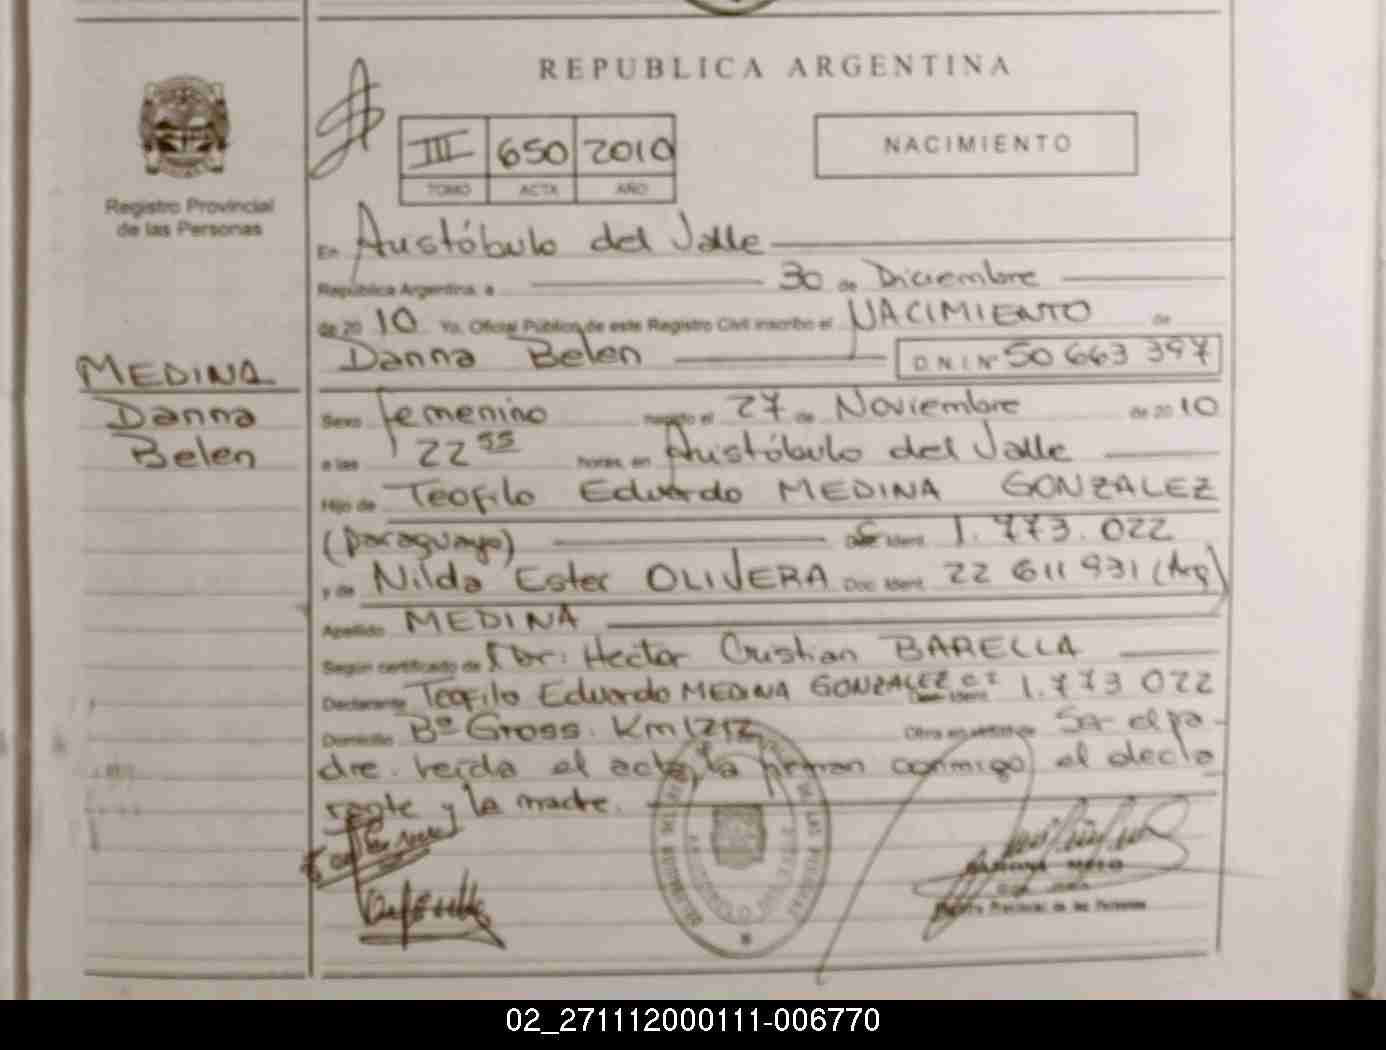 REPUBLICA ARGENTINA
III 650 2010
TOMO ACTA AÑO
NACIMIENTO
Registro Provincial
de las Personas
En Aristóbulo del Valle
República Argentina, a 30 de Diciembre
de 2010 Yo, Oficial Público de este Registro Civil inscribo el NACIMIENTO de
Danna Belen D.N.I. Nº 50 663 397
MEDINA
Danna
Belen
Sexo femenino nacido el 27 de Noviembre de 2010
a las 22 55 horas, en Aristóbulo del Valle
Hijo de Teofilo Eduardo MEDINA GONZALEZ
(paraguayo) Ident. 1.773.022
y de Nilda Ester OLIVERA Doc. Ident. 22 611 931 (Arg)
Apellido MEDINA
Según certificado de Dr: Hector Cristian BARELLA
Declarante Teofilo Eduardo MEDINA GONZALEZ C I Ident. 1.773 022
Domicilio Bº Gross. Km 1212 Obra en virtud de Ser el pa-
dre. leída el acta, la firman conmigo, el decla
rante y la madre.
RAMONA MELO
Registro Provincial de las Personas
02_271112000111-006770